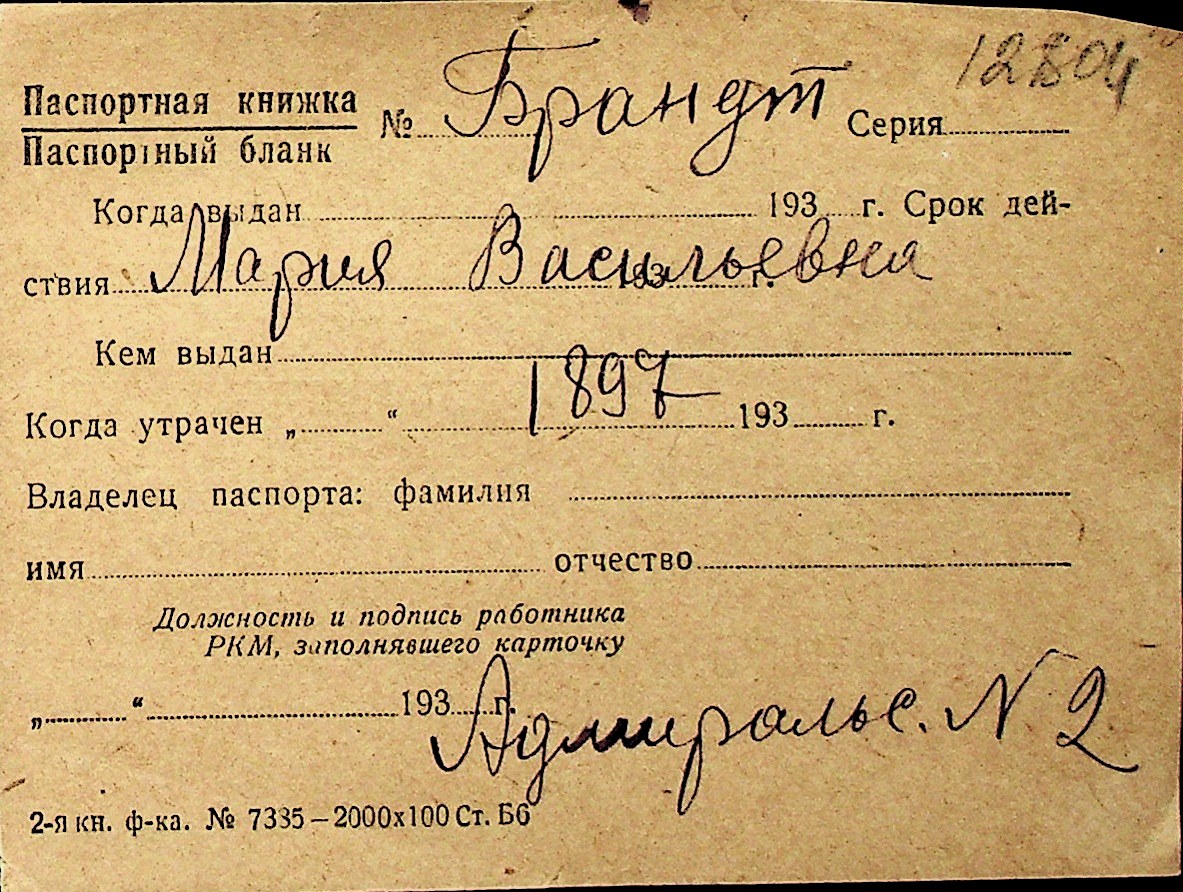 12804
Паспортная книжка
Паспортный бланк
№ Брандт Серия
Когда выдан 193 г. Срок дей-
ствия 193 г.
Мария Васильевна
Кем выдан
1897
Когда утрачен „ “ 193 г.
Владелец паспорта: фамилия
имя отчество
Должность и подпись работника
РКМ, заполнявшего карточку
„ “ 193 г.
Адмиральс. N 2
2-я кн. ф-ка. № 7335—2000х100 Ст. Б6